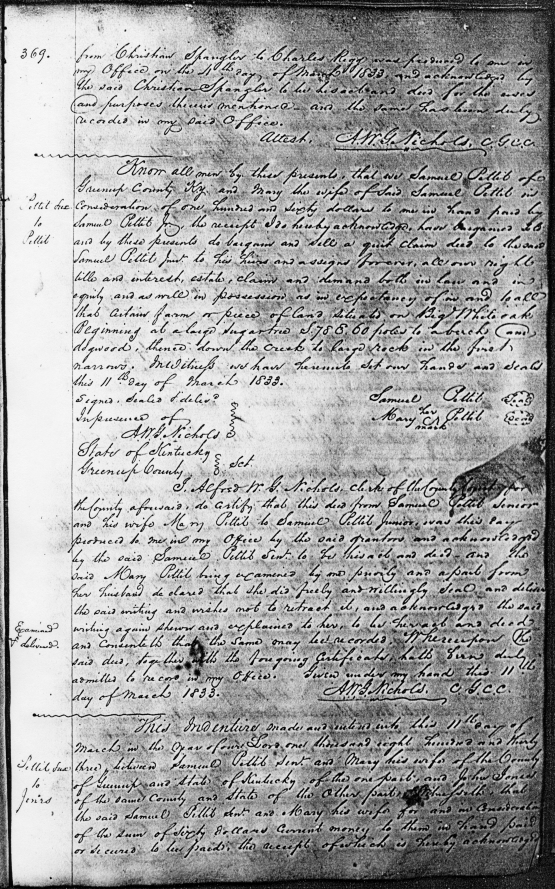 369.
from Christian Spangler to Charles Rigg was produced to me in
my Office, on the 4th day of March 1833 and acknowledged by
the said Christian Spangler to be his act and deed for the uses
and purposes therein mentioned - and the same has been duly
recorded in my said Office.
Attest. A.W.G. Nichols, C.G.C.C.
Know all men by these presents, that we Samuel Pettit of
Greenup County Ky. and Mary the wife of Said Samuel Pettit in
Pettit &ux
to
Pettit
Consideration of one hundred and Sixty dollars to me in hand paid by
Samuel Pettit Jr. the receipt I do hereby acknowledge, have bargained
and by these presents do bargain and Sell a quit claim deed to the said
Samuel Pettit Junr. to his heirs and assigns forever, all our right
title and interest, estate, claim and demand both in law and in
equity and as well in possession as in expectancy of in and to all
that certain farm or piece of land situate on Big White oak
Beginning at a large Sugartree S.78 E. 60 poles to a beech and
dogwood, thence down the Creek to large rock in the first
narrows. In Witness we have hereunto Set our hands and Seals
this 11th day of March 1833.
Signed, Sealed & deliv.d
In presence of
A.W.G. Nichols
Samuel Pettit Seal
Mary her mark Pettit Seal
State of Kentucky
Greenup County Sct.
I, Alfred W. G. Nichols, clerk of the County Court for
the County aforesaid, do certify that this deed from Samuel Pettit Senior
and his wife Mary Pettit to Samuel Pettit Junior, was this day
produced to me in my Office by the said grantors and acknowledged
by the said Samuel Pettit Senr. to be his act and deed - and the
said Mary Pettit being examined by me privily and apart from
her husband declared that she did freely and willingly Seal and deliver
the said writing and wishes not to retract it, and acknowledged the said
Examined
& delivered.
writing again shewn and explained to her, to be her act and deed
and Consenteth that the Same may be recorded. Whereupon the
said deed, together with the foregoing Certificate, hath been duly
admitted to record in my Office. Given under my hand this 11th
day of March 1833. A.W.G. Nichols. C.G.C.C.
This Indenture made and entered into this 11th day of
March in the year of our Lord one thousand eight hundred and thirty
Pettit &ux
to
Jones
three, between Samuel Pettit Senr and Mary his wife of the County
of Greenup and State of Kentucky of the one part, and John Jones
of the same County and State of the Other part, Witnesseth, that
the said Samuel Pettit Senr and Mary his wife for and in Consideration
of the sum of Sixty dollars current money to them in hand paid
or secured to be paid, the receipt of which is hereby acknowledged